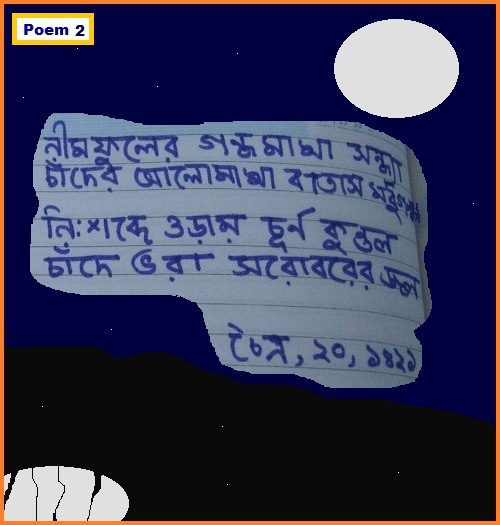 Poem 2
নীমফুলের গন্ধমাখা সন্ধ্যা
চাঁদের আলোমাখা বাতাস মধুগন্ধা
নিঃশব্দে ওড়ায় চূর্ন কুন্তল
চাঁদে ভরা সরোবরের জল
চৈত্র, ২০, ১৪২১